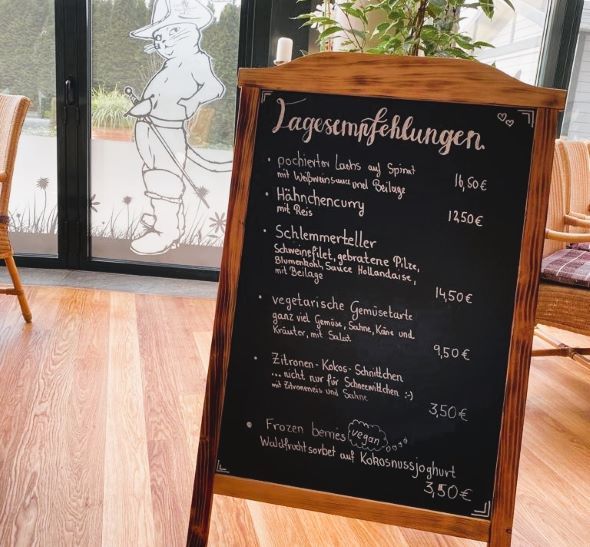 Tagesempfehlungen
• pochierter Lachs auf Spinat
mit Weißweinsauce und Beilage 16,50€
• Hähnchencurry
mit Reis 12,50€
• Schlemmerteller
Schweinefilet, gebratene Pilze,
Blumenkohl, Sauce Hollandaise,
mit Beilage
14,50€
• vegetarische Gemüsetarte
ganz viel Gemüse, Sahne, Käse und
Kräuter, mit Salat
9,50€
• Zitronen-Kokos-Schnittchen
...nicht nur für Schneewittchen :-)
mit Zitroneneis und Sahne
3,50€
• Frozen berries vegan
Waldfruchtsorbet auf Kokosnussjoghurt
3,50€